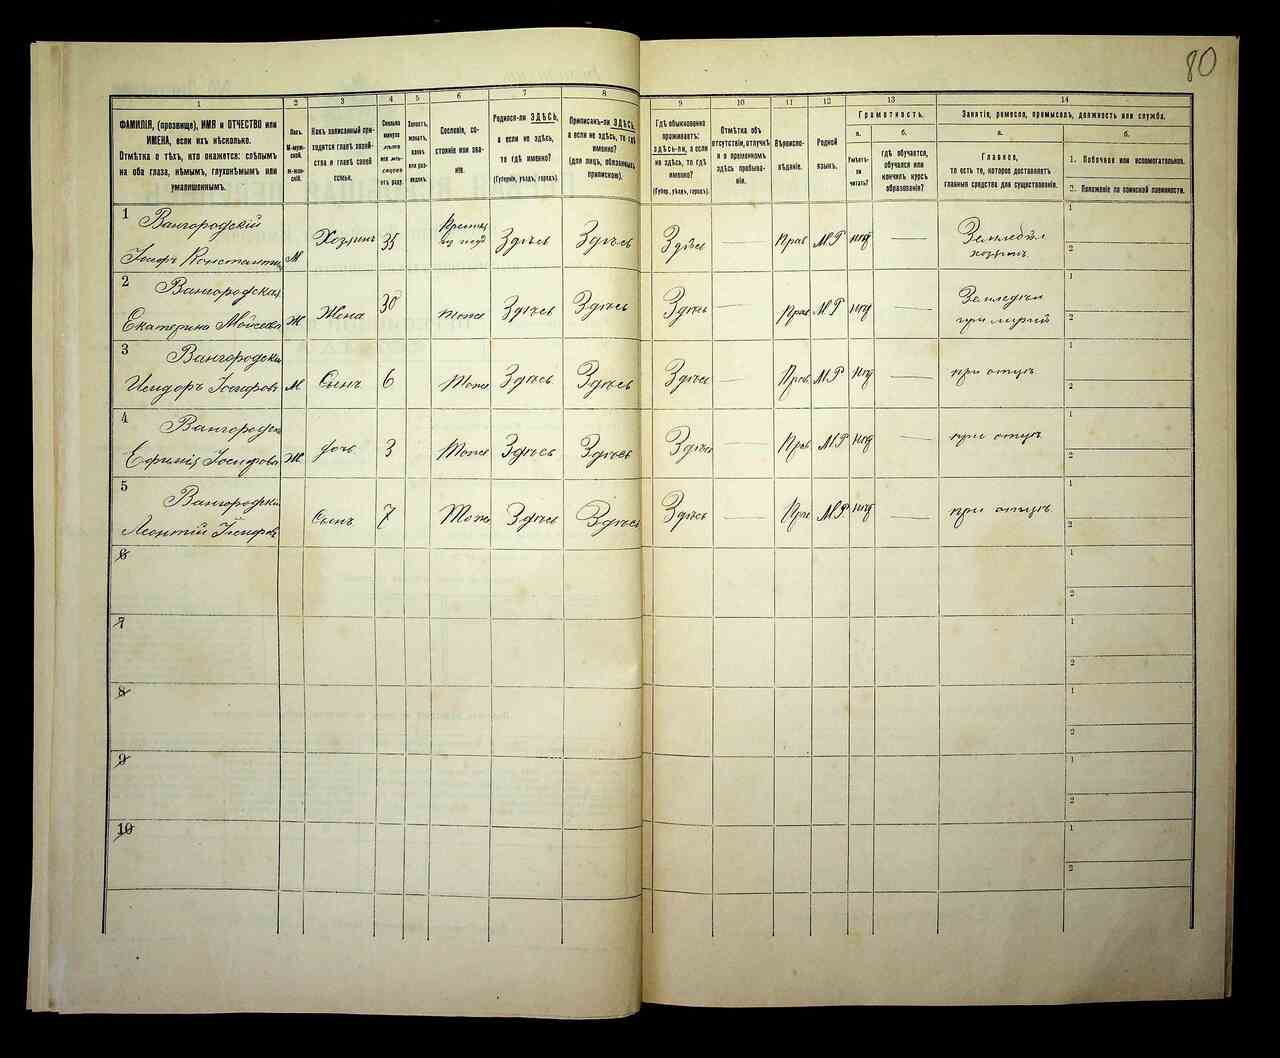 80
1
2
3
4
5
6
7
8
9
10
11
12
13
14
ФАМИЛІЯ, (прозвище), ИМЯ и ОТЧЕСТВО или
ИМЕНА, если ихъ нѣсколько.
Отмѣтка о тѣхъ, кто окажется: слѣпымъ
на оба глаза, нѣмымъ, глухонѣмымъ или
умалишеннымъ.
Полъ.
М-муж-
ской.
Ж-жен-
скій.
Какъ записанный при-
ходится главѣ хозяй-
ства и главѣ своей
семьи.
Сколько
минуло
лѣтъ
или мѣ-
сяцевъ
отъ роду.
Холостъ,
женатъ,
вдовъ
или раз-
веденъ.
Сословіе, со-
стояніе или зва-
ніе.
Родился-ли ЗДѢСЬ,
а если не здѣсь,
то гдѣ именно?
(Губернія, уѣздъ, городъ).
Приписанъ-ли ЗДѢСЬ,
а если не здѣсь, то гдѣ
именно?
(для лицъ, обязанныхъ
припискою).
Гдѣ обыкновенно
проживаетъ:
здѣсь-ли, а если
не здѣсь, то гдѣ
именно?
(Губер., уѣздъ, городъ).
Отмѣтка объ
отсутствіи, отлучкѣ
и о временномъ
здѣсь пребыва-
ніи.
Вѣроиспо-
вѣданіе.
Родной
языкъ.
Грамотность.
а.
б.
Умѣетъ-
ли
читать?
гдѣ обучается,
обучался или
кончилъ курсъ
образованія?
Занятіе, ремесло, промыселъ, должность или служба.
а.
б.
Главное,
то есть то, которое доставляетъ
главныя средства для существованія.
1. Побочное или вспомогательное.
2. Положеніе по воинской повинности.
1
Вангородскій
Іосифъ Константин
М
Хозяинъ
35
Здѣсь
Здѣсь
Здѣсь
—
Прав
МР
нѣт
—
Земледѣл
хозяинъ
1
2
2
Вангородская
Екатерина Мойсеева
Ж
Жена
30
тоже
Здѣсь
Здѣсь
Здѣсь
—
Прав
МР
нѣт
—
Земледѣл
1
2
3
Вангородскій
Исидоръ Іосифовъ
М
Сынъ
6
Тоже
Здѣсь
Здѣсь
Здѣсь
—
Прав
МР
нѣт
—
при отцѣ
1
2
4
Вангородск
Ефимія Іосифова
Ж
дочь
3
Тоже
Здѣсь
Здѣсь
Здѣсь
—
Прав
МР
нѣт
—
при отцѣ
1
2
5
Вангородскій
Леонтій Іосифов
Сынъ
7
Тоже
Здѣсь
Здѣсь
Здѣсь
—
Пра
МР
нѣт
—
при отцѣ
1
2
6
1
2
7
1
2
8
1
2
9
1
2
10
1
2